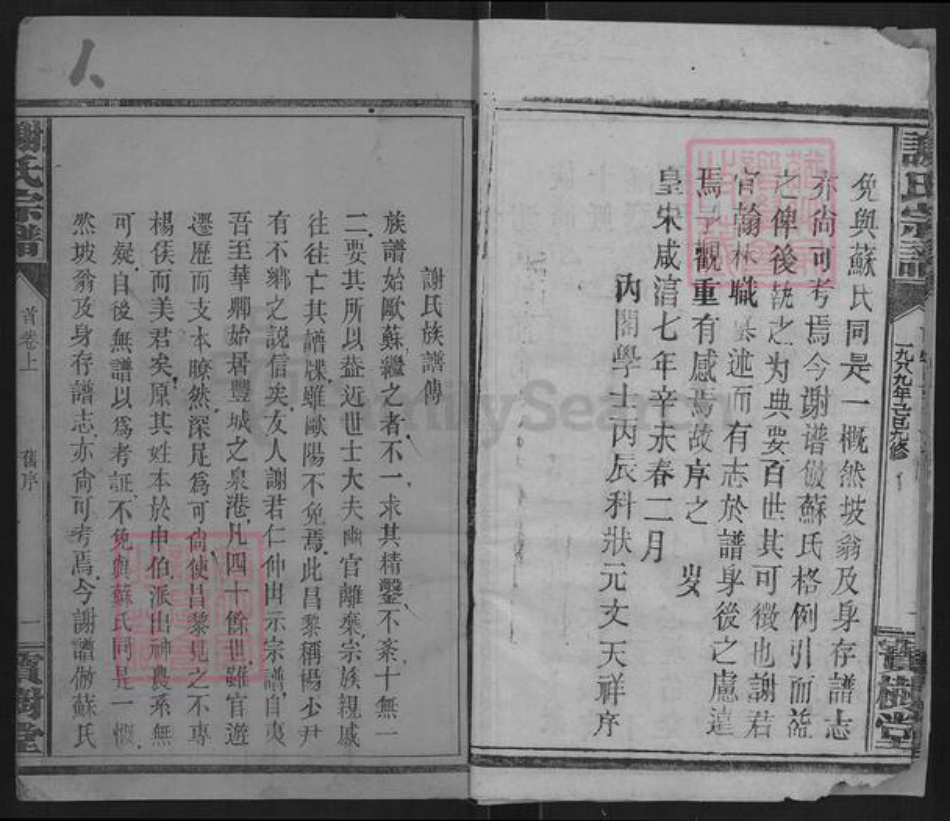 免與蘇氏同是一概然坡翁及身存譜志
亦尚可考焉今谢谱倣蘇氏格例引而誌
之俾後執之为典要百世其可徵也謝君
官翰林職纂述而有志於譜身後之慮遠
焉予觀重有感焉故序之 岁
皇宋咸淳七年辛未春二月
内閣學士丙辰科狀元文天祥序
謝氏宗譜
一九八九年己巳九修
寶樹堂
謝氏族譜傳
族譜始歐蘇繼之者不一求其精鑿不紊十無一
二要其所以盖近世士大夫幽官離棄宗族親戚
往往亡其譜牒雖歐陽不免焉此昌黎稱楊少尹
有不鄉之説信矣友人謝君仁仲出示宗譜自夷
吾至華卿始居豐城之泉港凡四十餘世雖官遊
遷歷而支本瞭然深足為可尚使昌黎見之不專
楊侯而美君矣原其姓本於申伯派出神農系無
可疑自後無譜以爲考証不免與蘇氏同是一慨
然坡翁及身存譜志亦尚可考焉今謝譜倣蘇氏
謝氏宗譜
首卷上
舊序
一
寶樹堂
FamilySearch